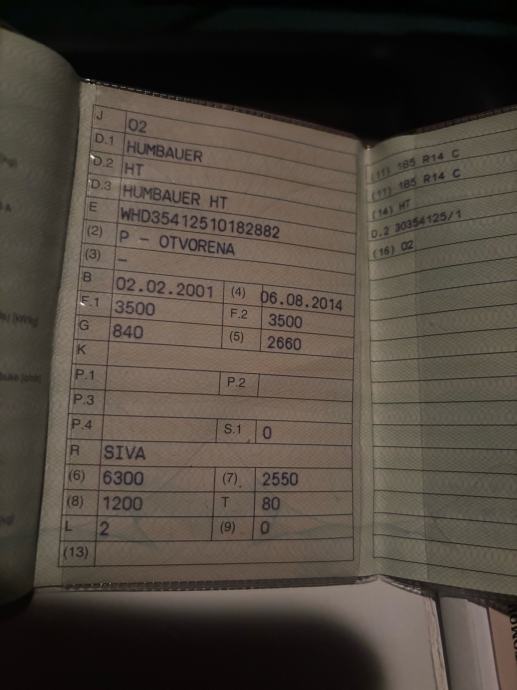 J O2
D.1 HUMBAUER
D.2 HT
D.3 HUMBAUER HT
E WHD35412510182882
(2) P - OTVORENA
(3) -
B 02.02.2001 (4) 06.08.2014
F.1 3500 F.2 3500
G 840 (5) 2660
K
P.1 P.2
P.3
P.4 S.1 0
R SIVA
(6) 6300 (7) 2550
(8) 1200 T 80
L 2 (9) 0
(13)
(11) 185 R14 C
(11) 185 R14 C
(14) HT
D.2 30354125/1
(16) O2